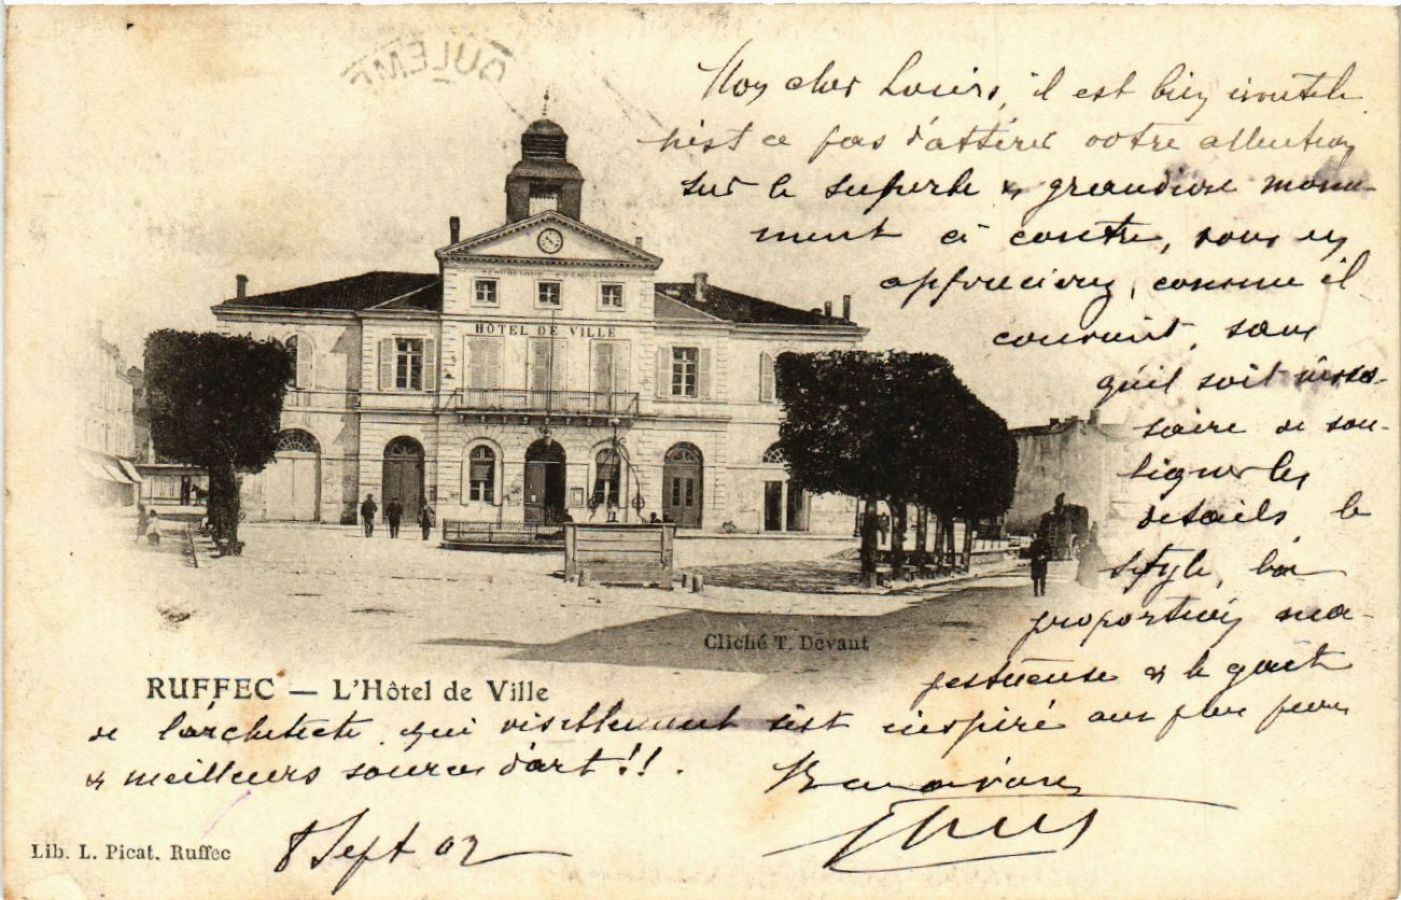 OULEME
Mon cher Louis, il est bien inutile
n'est ce pas d'attirer votre attention
sur le superbe & grandiose monu-
ment ci contre, vous en
apprécierez, comme il
convient, sans
qu'il soit néces-
saire de sou-
ligner les
détails, le
style, les
proportions ma-
jestueuse & le goût
de l'architecte qui visiblement s'est inspiré aux plus pures
& meilleurs sources d'art!!.
8 Sept 02
REPUBLIQUE FRANÇAISE
HÔTEL DE VILLE
Cliché T. Devant
RUFFEC — L'Hôtel de Ville
Lib. L. Picat. Ruffec